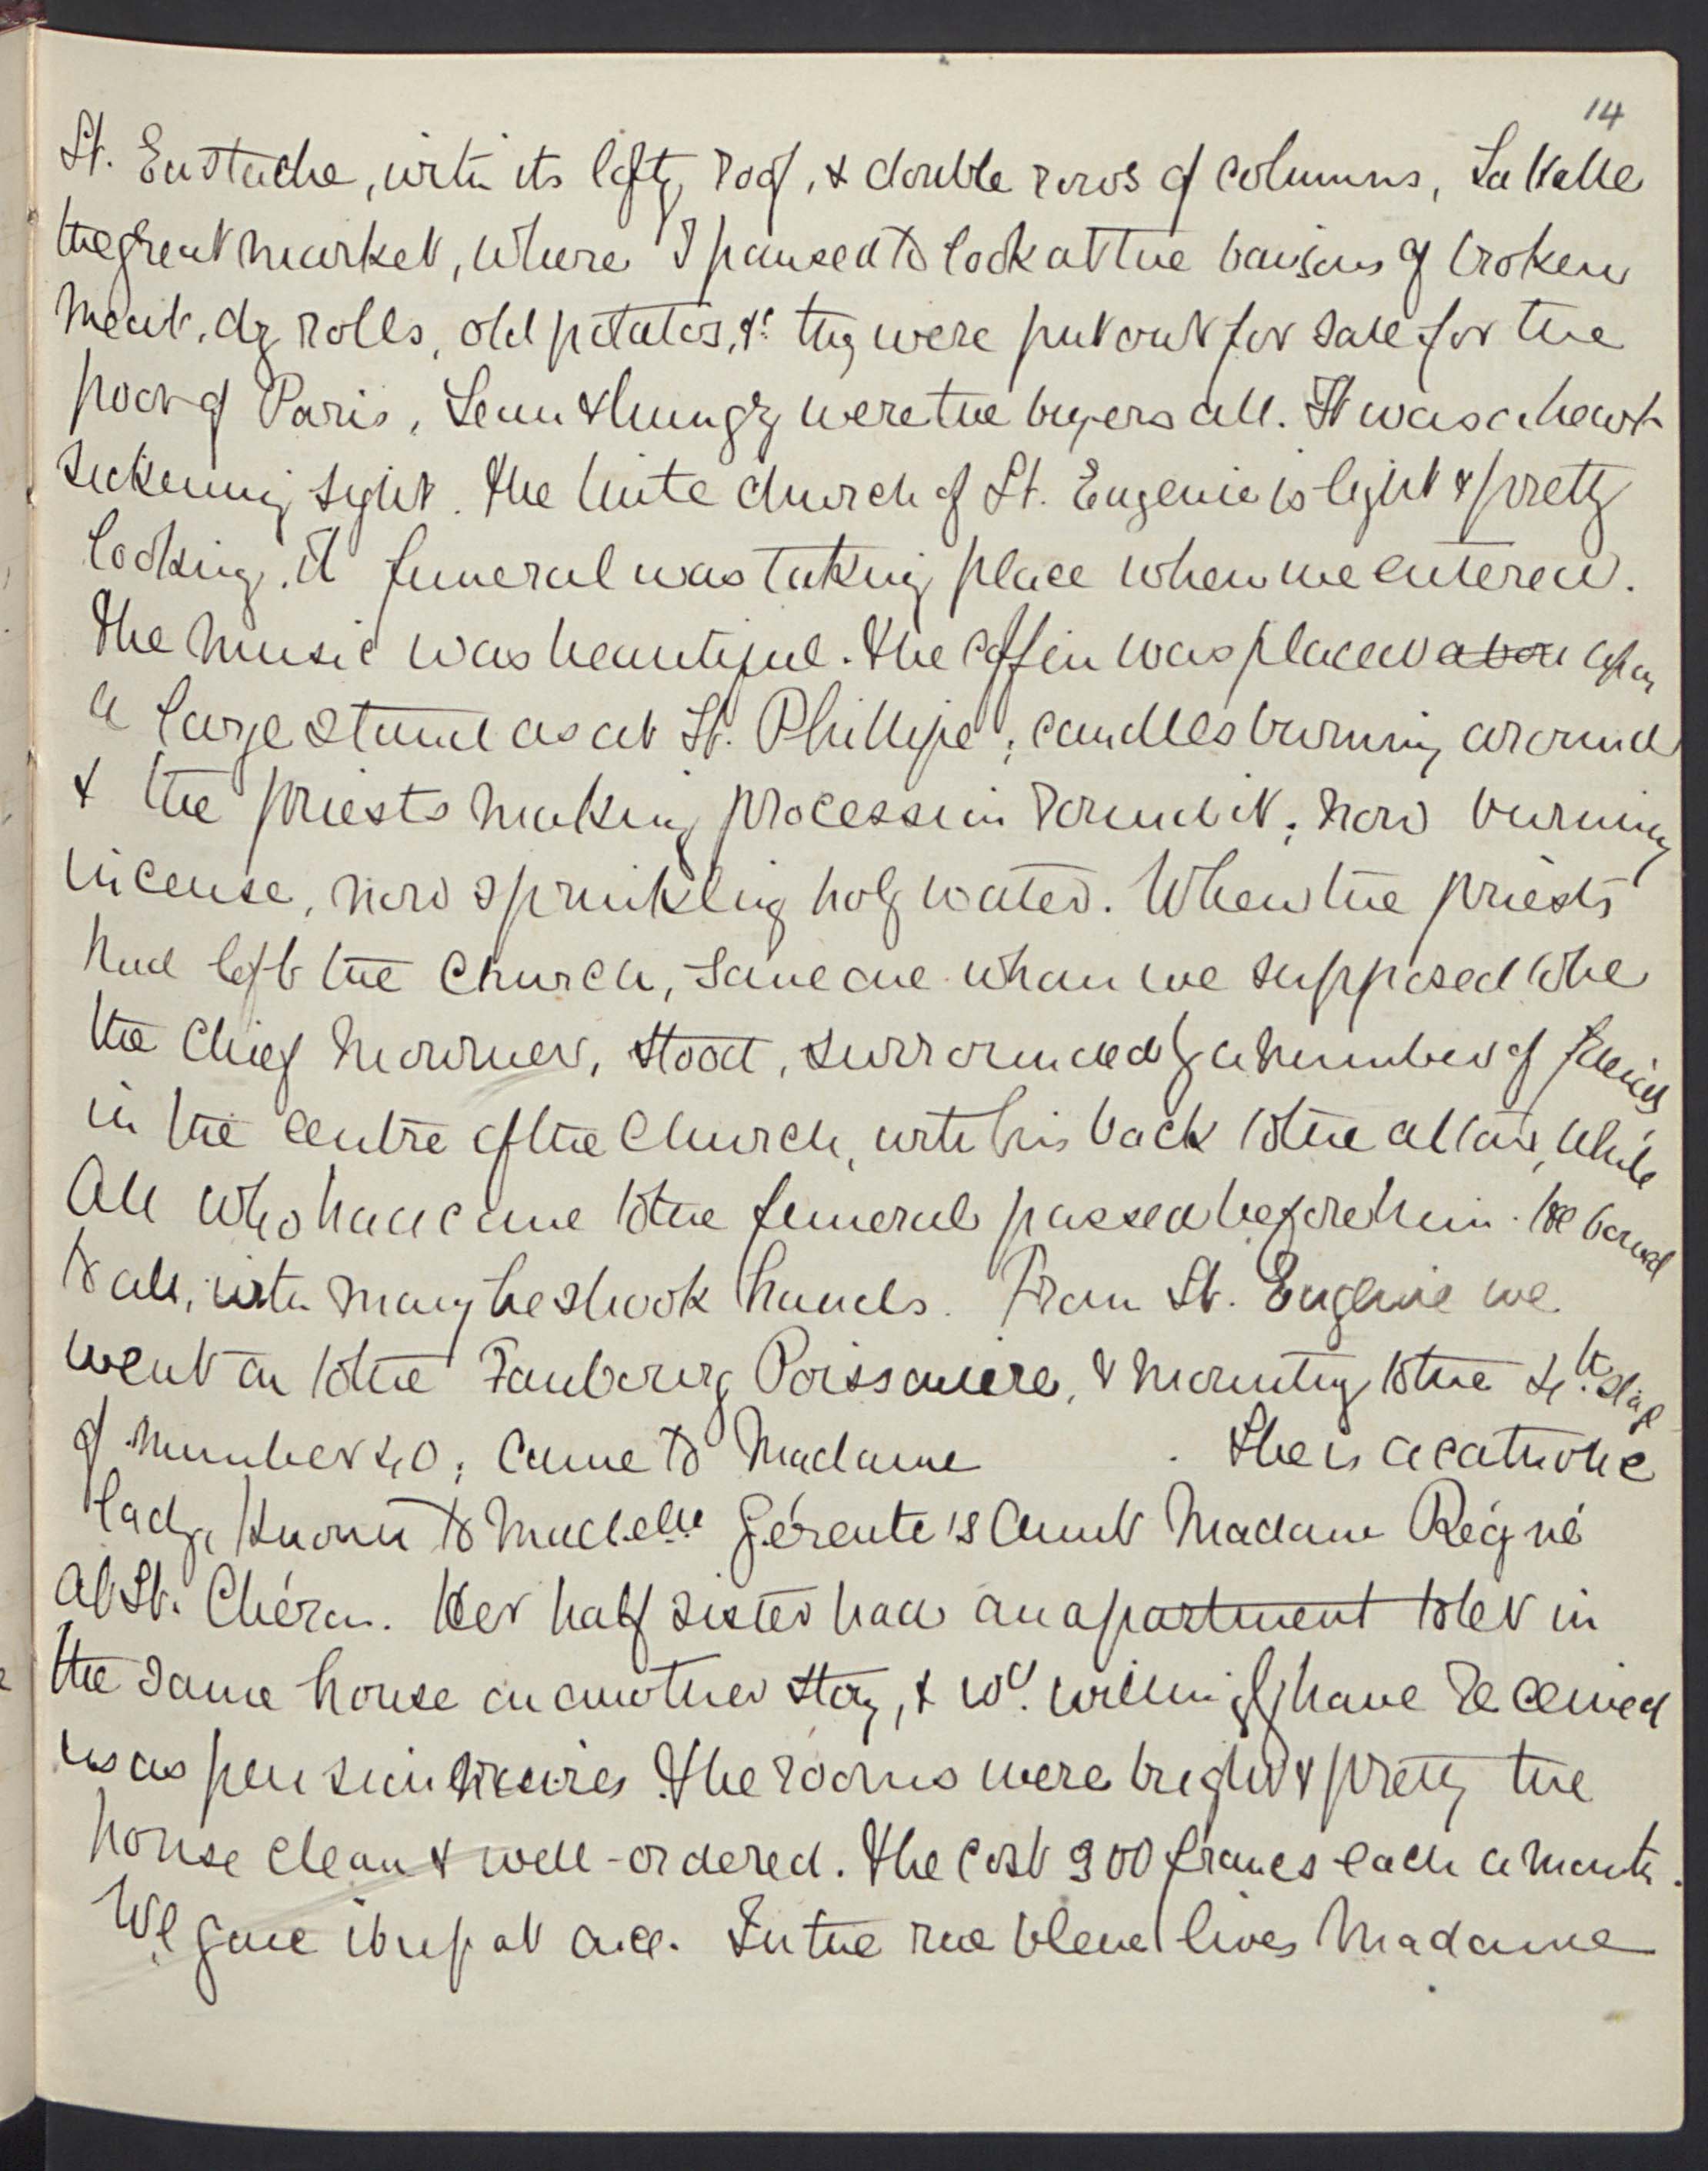 14
St. Eustache, with its lofty roof, & double rows of columns, La Halle
the great market, where I paused to look at the basins of broken
meat, dry rolls, old potatos, &c they were put out for sale for the
poor of Paris, Lean & hungry were the buyers all. It was a heart
sickening sight. The little church of St. Eugenie is light & pretty
looking. A funeral was taking place when we entered.
The music was beautiful. The coffin was placed above upon
a large stand as at St. Phillipe; candles burning around
& the priests making procession round it; now burning
incense, now sprinkling holy water. When the priests
had left the church, some one whom we supposed to be
the chief mourner, stood, surrounded by a number of friends
in the centre of the church, with his back to the altar, while
all who had come to the funeral passed before him. He bowed
to all, with many he shook hands. From St. Eugenie we
went on to the Faubourg Poissoniere, & mounting to the 4th. stage
of number 40; came to Madame . She is a catholic
lady, known to Madelle Gérente's Aunt Madame Régné
at St. Chéron. Her half sister had an apartment to let in
the same house on another story, & wd. willingly have received
us as pensionaires. The rooms were bright & pretty the
house clean & well-ordered. The cost 300 francs each a month.
We gave it up at once. In the rue bleue lives Madame